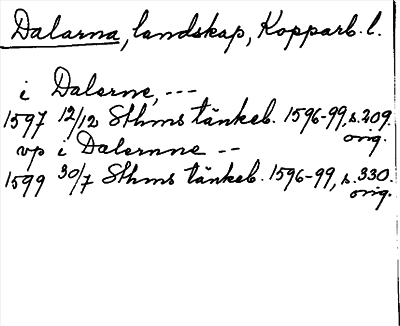 Dalarna, landskap, Kopparb. l.
i Dalerne, ---
1597 12/12 Sthms tänkeb. 1596-99, s. 209.
orig.
vp i Dalernne --
1599 30/7 Sthms tänkeb. 1596-99, s. 330.
orig.